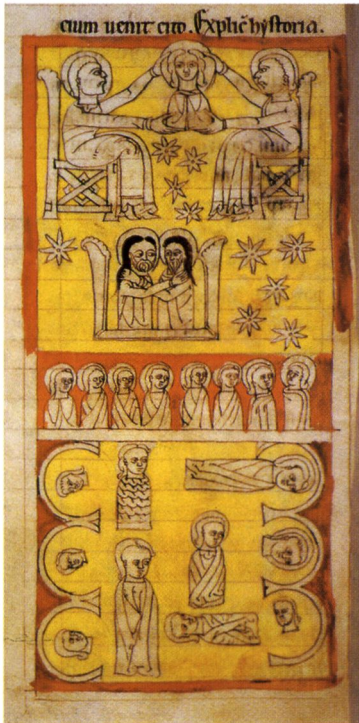 cium uenit cito. Explic̄ hystoria.